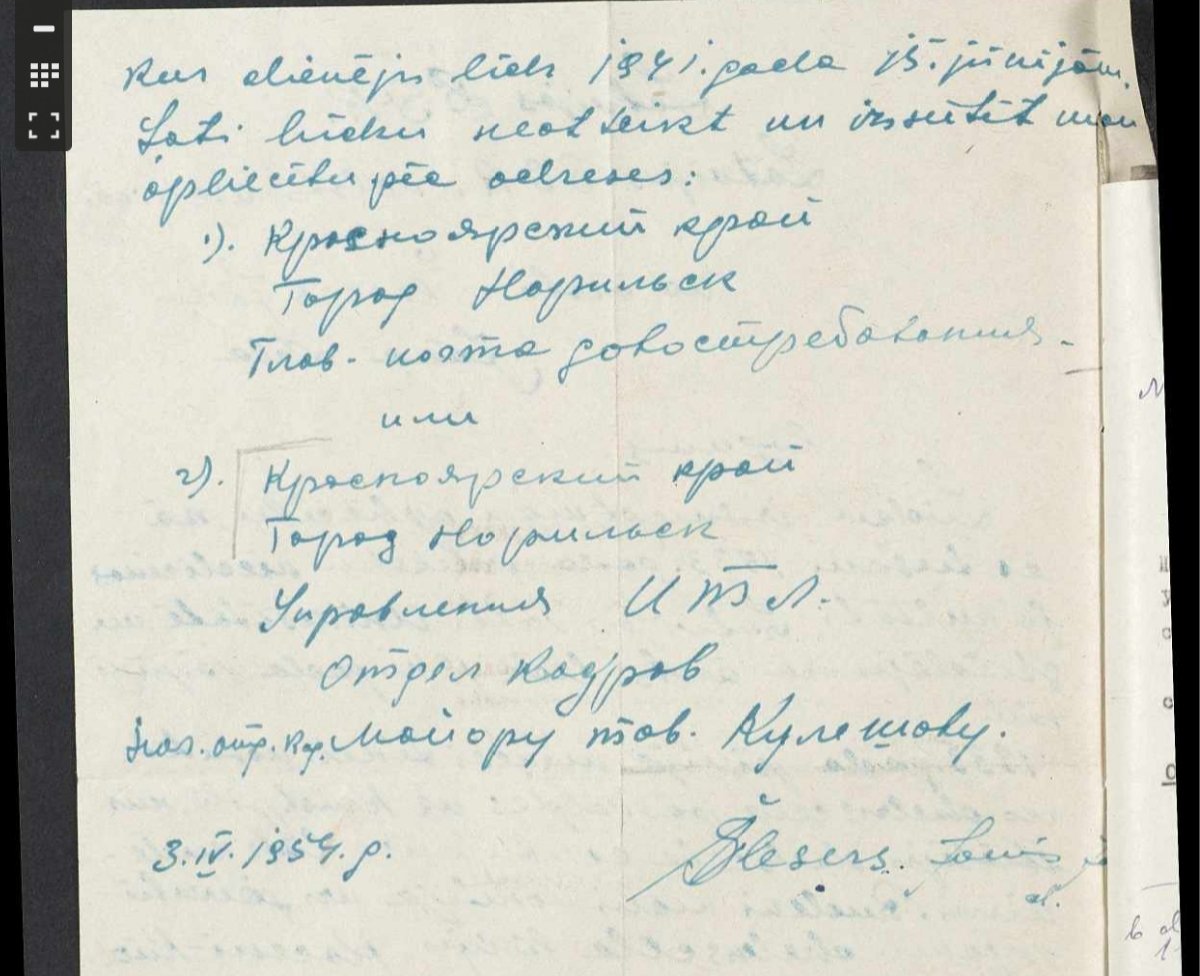 kur dienēju līdz 1941. gada 15. jūnijam.
Ļoti lūdzu neatteikt un izsūtīt man
apliecību pēc adreses:
1). Красноярский край
Город Норильск
Глав. почта довостребования -
или
2). Красноярский край
Город Норильск
Управления ИТЛ.
Отдел Кадров
Нач. отд. Кад. Майору тов. Кулешову.
3. IV. 1954. g.
Šlesers Jānis